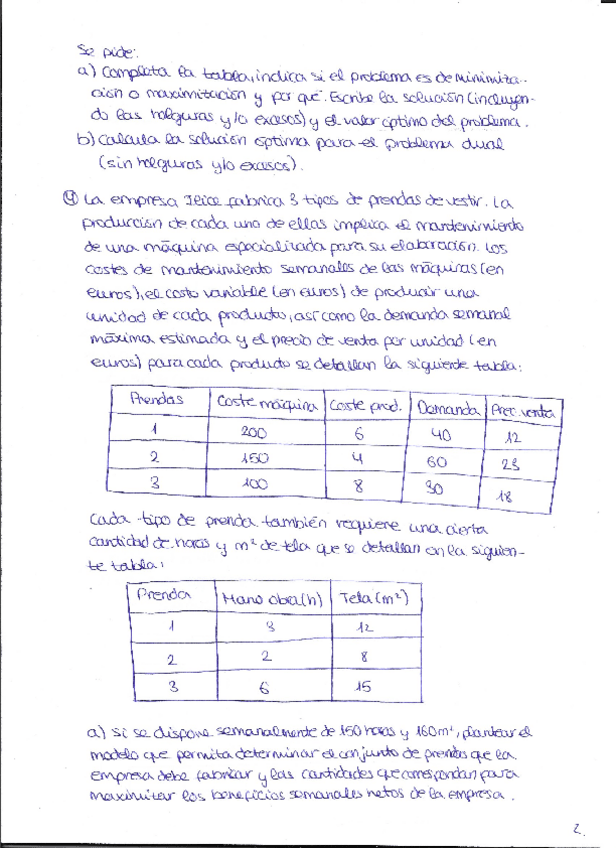 Se pide:
a) Completa la tabla, indica si el problema es de minimiza-
ción o maximización y por qué. Escribe la solución (incluyen-
do las holguras y/o excesos) y el valor óptimo del problema.
b) Calcula la solución óptima para el problema dual
(sin holguras y/o excesos).
4 La empresa Ilice fabrica 3 tipos de prendas de vestir. La
producción de cada uno de ellas implica el mantenimiento
de una máquina especializada para su elaboración. Los
costes de mantenimiento semanales de las máquinas (en
euros), el costo variable (en euros) de producir una
unidad de cada producto, así como la demanda semanal
máxima estimada y el precio de venta por unidad (en
euros) para cada producto se detallan la siguiente tabla:
Prendas Coste máquina Coste prod. Demanda Prec. venta
1 200 6 40 12
2 150 4 60 23
3 100 8 30 18
Cada tipo de prenda también requiere una cierta
cantidad de horas y m² de tela que se detallan en la siguien-
te tabla:
Prenda Mano obra (h) Tela (m²)
1 3 12
2 2 8
3 6 15
a) Si se dispone semanalmente de 150 horas y 160 m², plantear el
modelo que permita determinar el conjunto de prendas que la
empresa debe fabricar y las cantidades que correspondan para
maximizar los beneficios semanales netos de la empresa.
2.